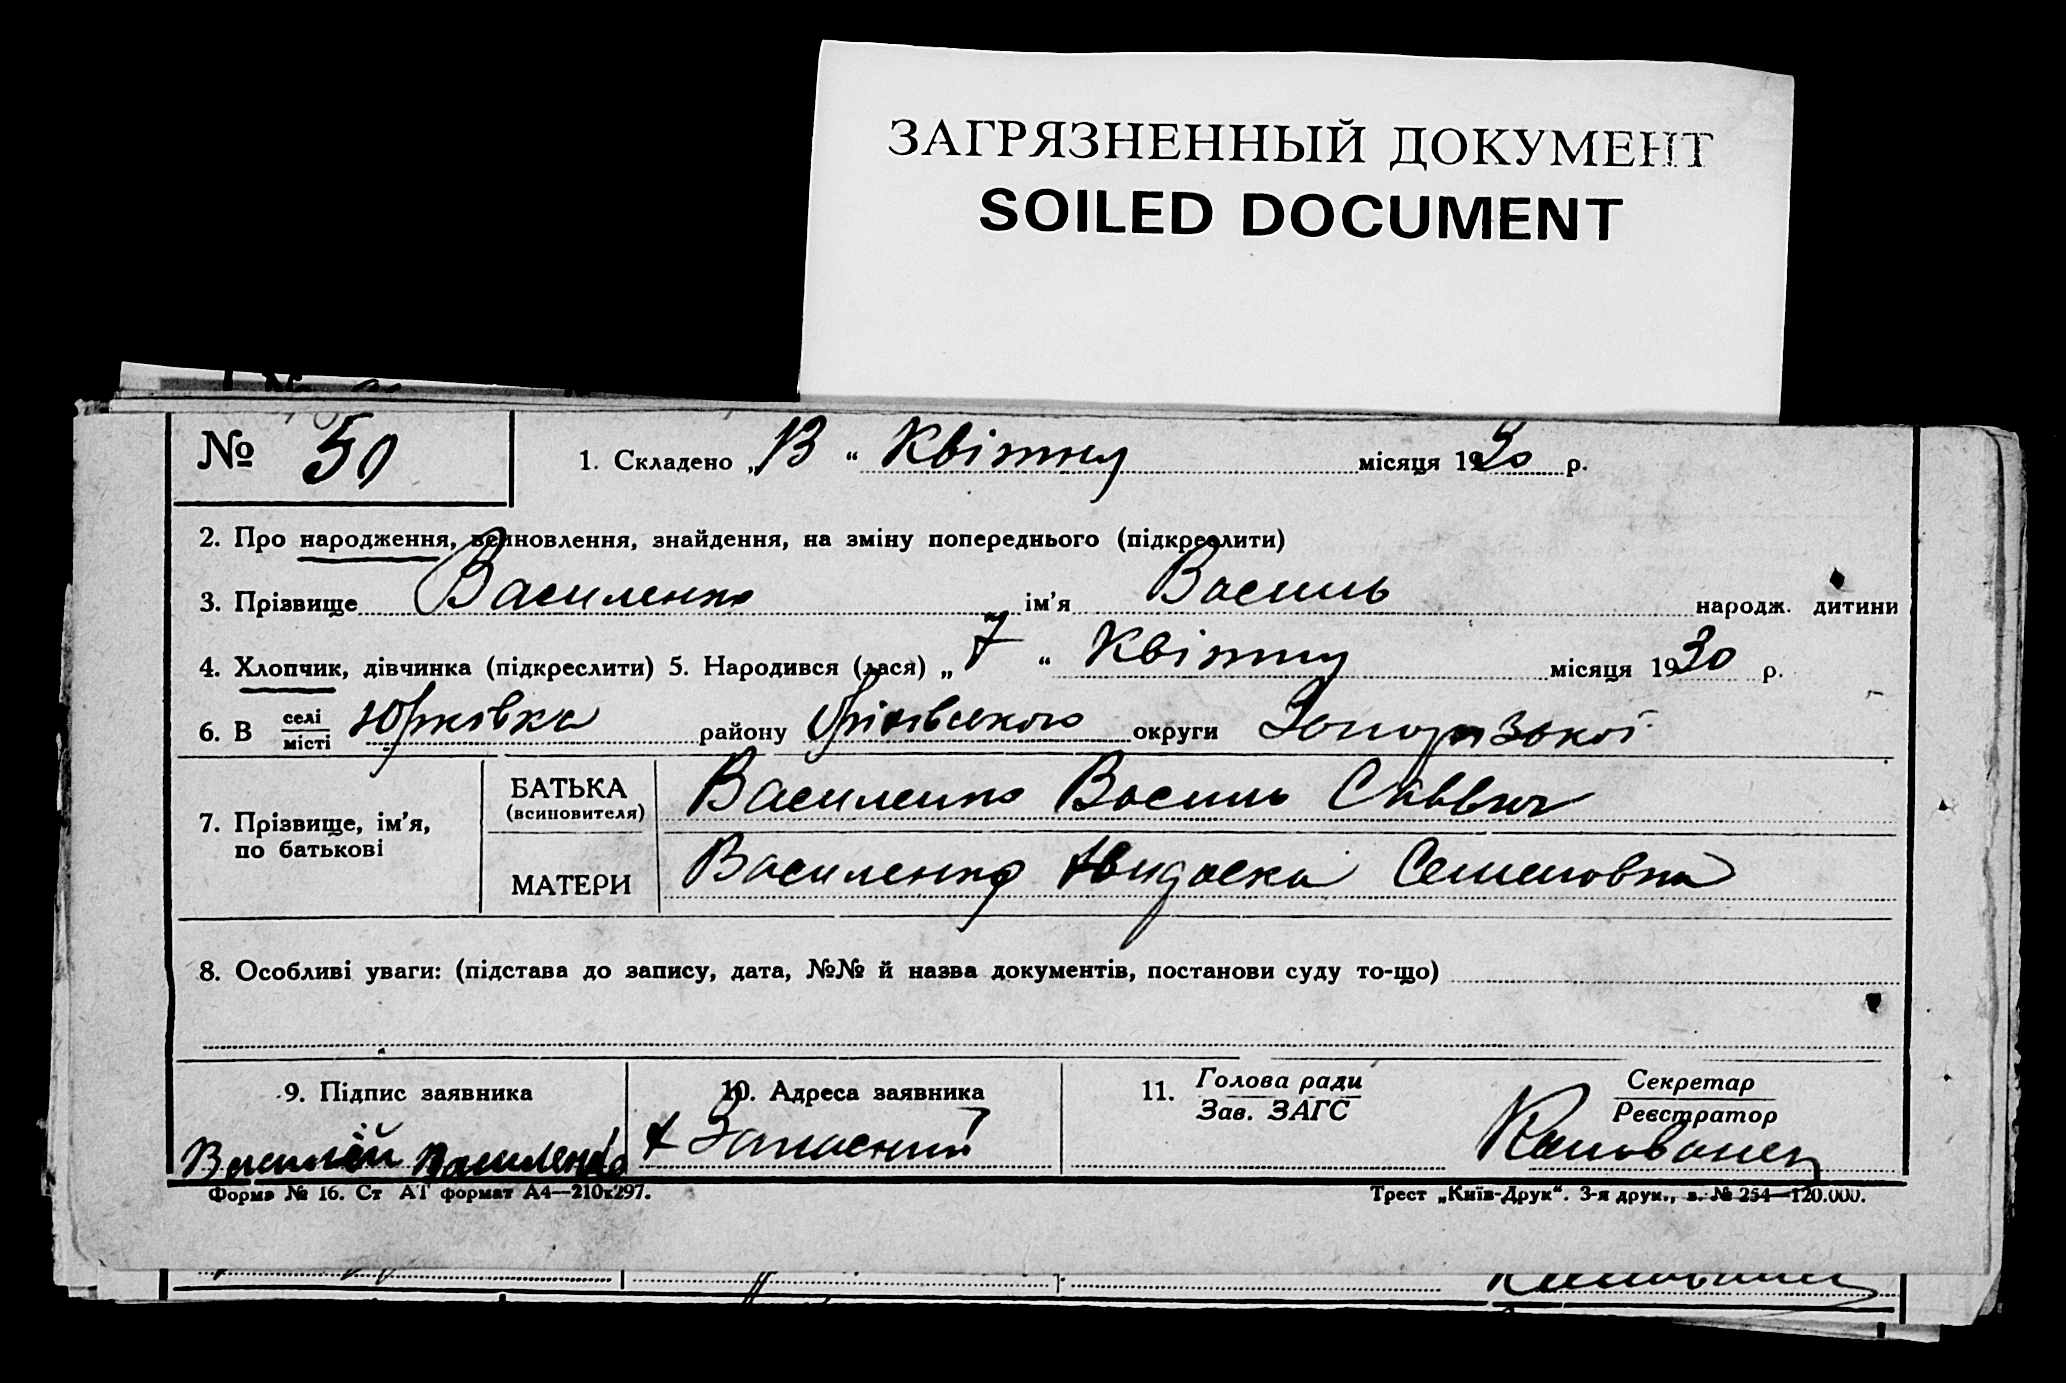 ЗАГРЯЗНЕННЫЙ ДОКУМЕНТ
SOILED DOCUMENT
№ 50
1. Складено „13“ Квітня місяця 1930 р.
2. Про народження, всиновлення, знайдення, на зміну попереднього (підкреслити)
3. Прізвище Василенко ім’я Василь народж. дитини
4. Хлопчик, дівчинка (підкреслити) 5. Народився (лася) „7“ Квітня місяця 1930 р.
6. В селі/місті Юрківка району Оріхівського округи Запорізької
7. Прізвище, ім’я, по батькові
БАТЬКА (всиновителя) Василенко Василь Саввич
МАТЕРИ Василенко Семеновна
8. Особливі уваги: (підстава до запису, дата, №№ й назва документів, постанови суду то-що)
9. Підпис заявника
10. Адреса заявника
11. Голова ради
Зав. ЗАГС
Секретар
Реєстратор
Василій Василенко
Форма № 16. Ст АТ формат А4—210х297.
Трест „Київ-Друк“. 3-я друк., з. № 254—120.000.